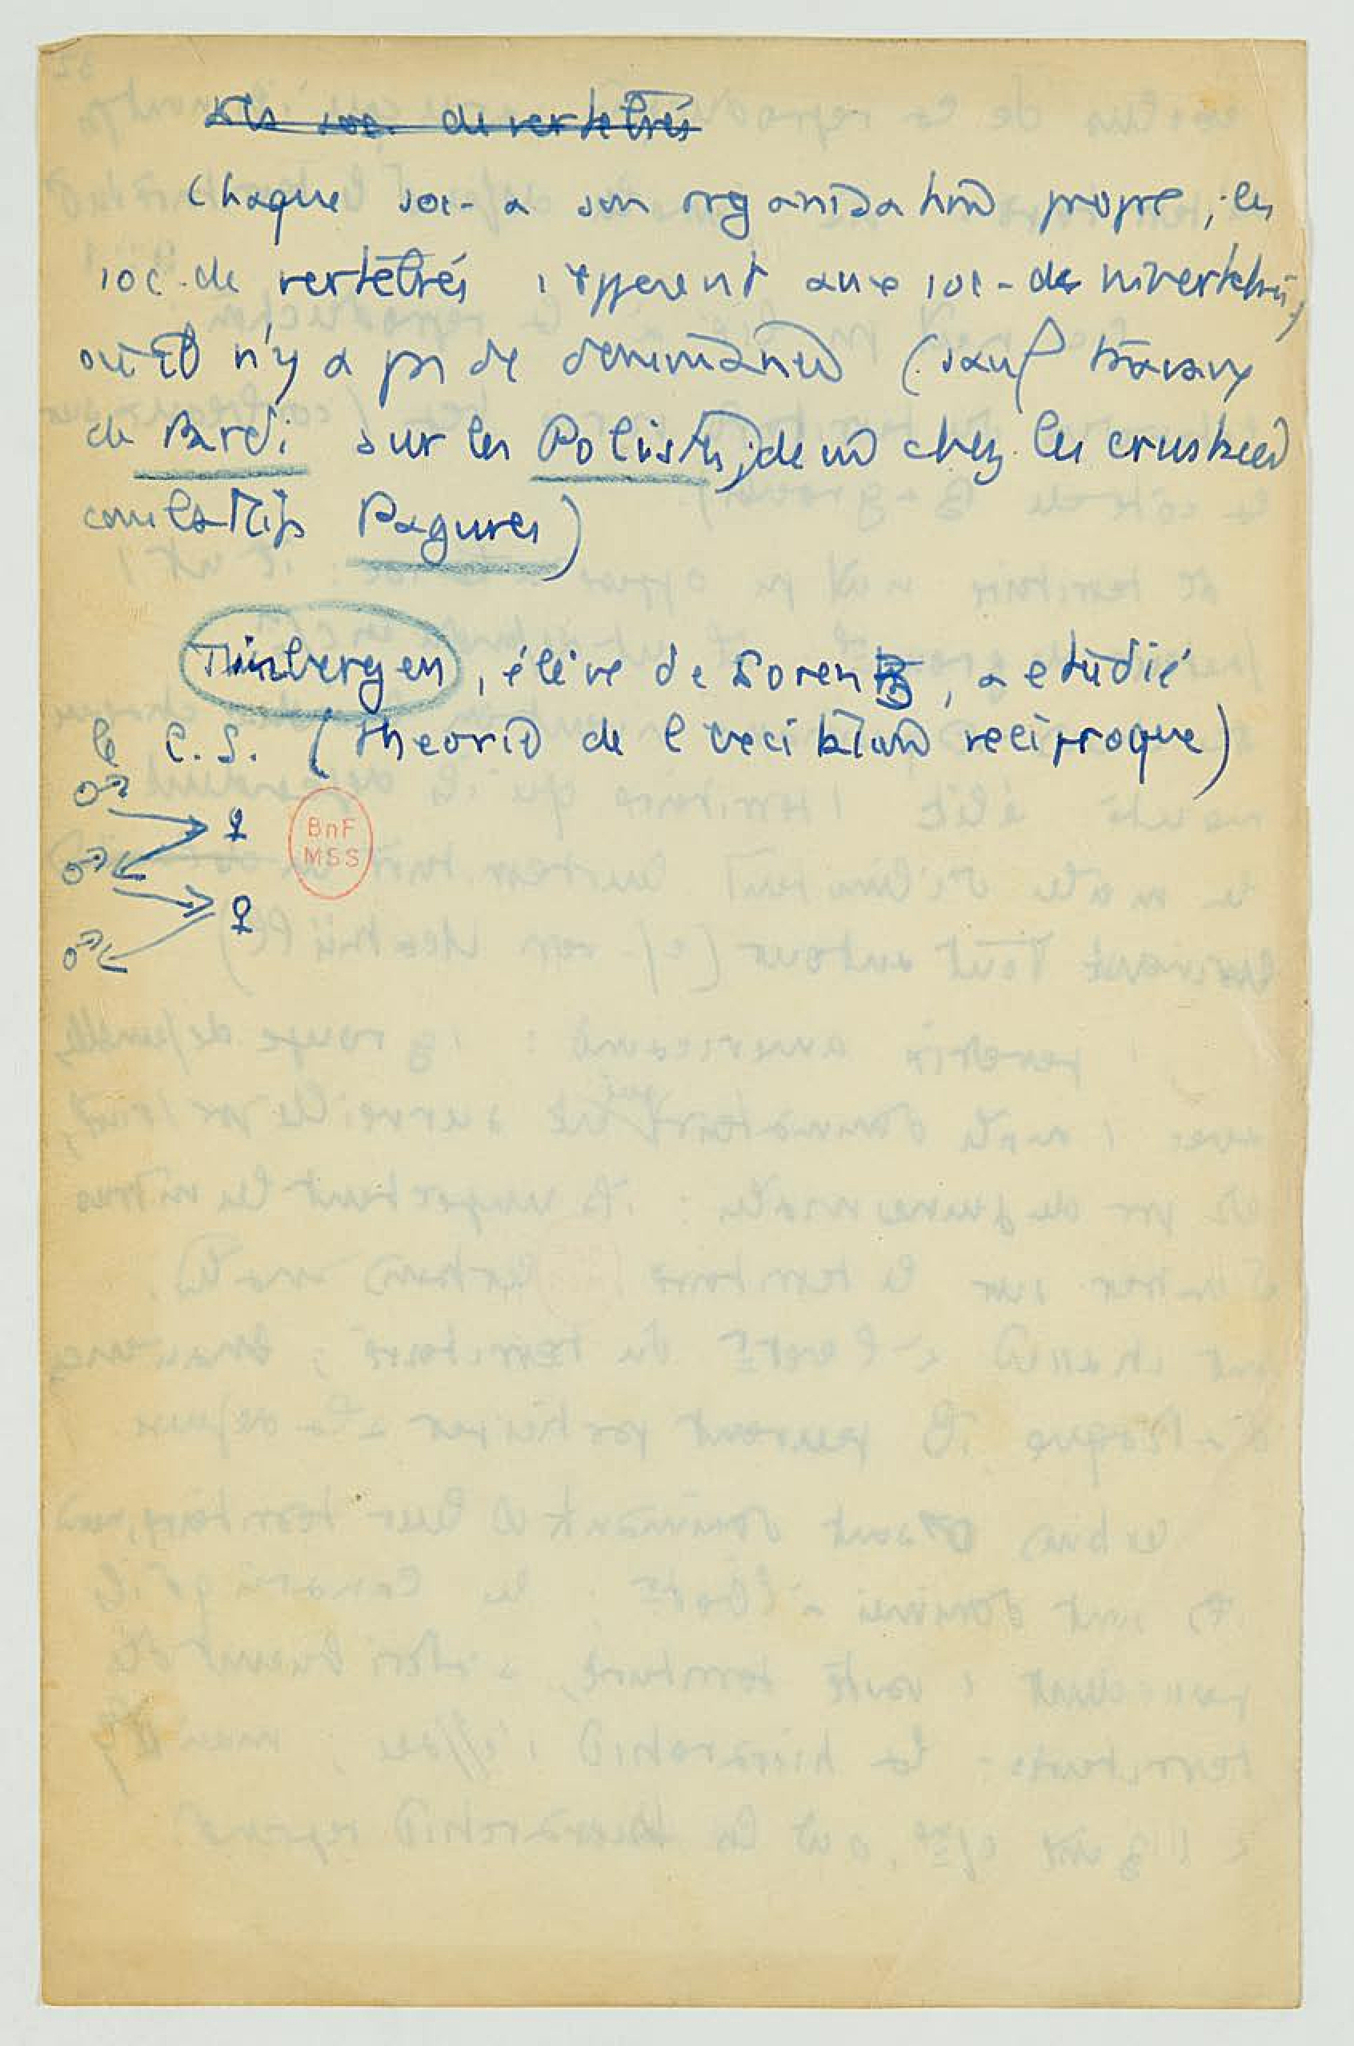 ~~Les soc. de vertébrés~~
Chaque soc. a son organisation propre ; les
soc. de vertébrés s'opposent aux soc. des invertébrés,
où il n'y a pas de dominance (sauf travaux
de Pardi sur les Polistes, de chez les crustacés
Pagures)
Tinbergen, élève de Lorenz, a étudié
le C.S. (théorie de l'excitation réciproque)
♂
♀
♂
♀
♂
BnF
MSS